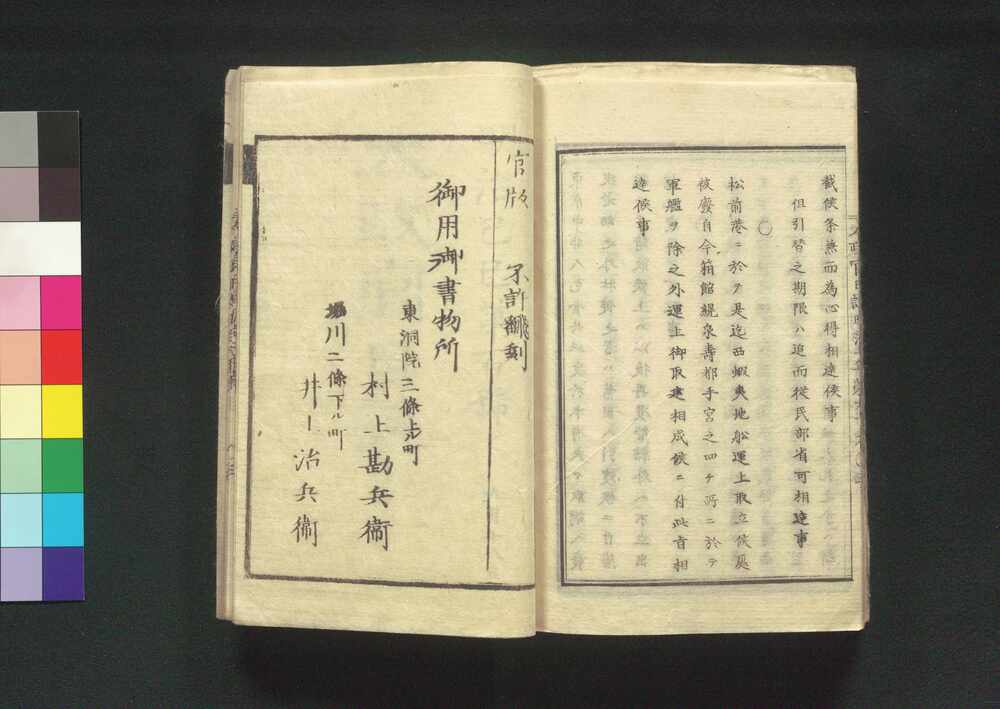 截候条兼而為心得相達候事
但引替之期限ハ追而従民部省可相達事
〇
松前港ニ於テ是迄西蝦夷地船運上取立候處
被廢自今箱館幌泉壽都手宮之四ヶ所ニ於テ
軍艦ヲ除之外運上御取建相成候ニ付此旨相
達候事
官版　不許翻刻
御用御書物所
東洞院三條上ル町
村上勘兵衞
堀川二條下ル町
井上治兵衞